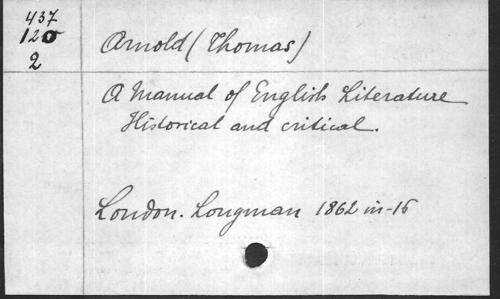 437
120
2
Arnold (Thomas)
A Manual of English Literature
Historical and critical.
London. Longman 1862 in-16